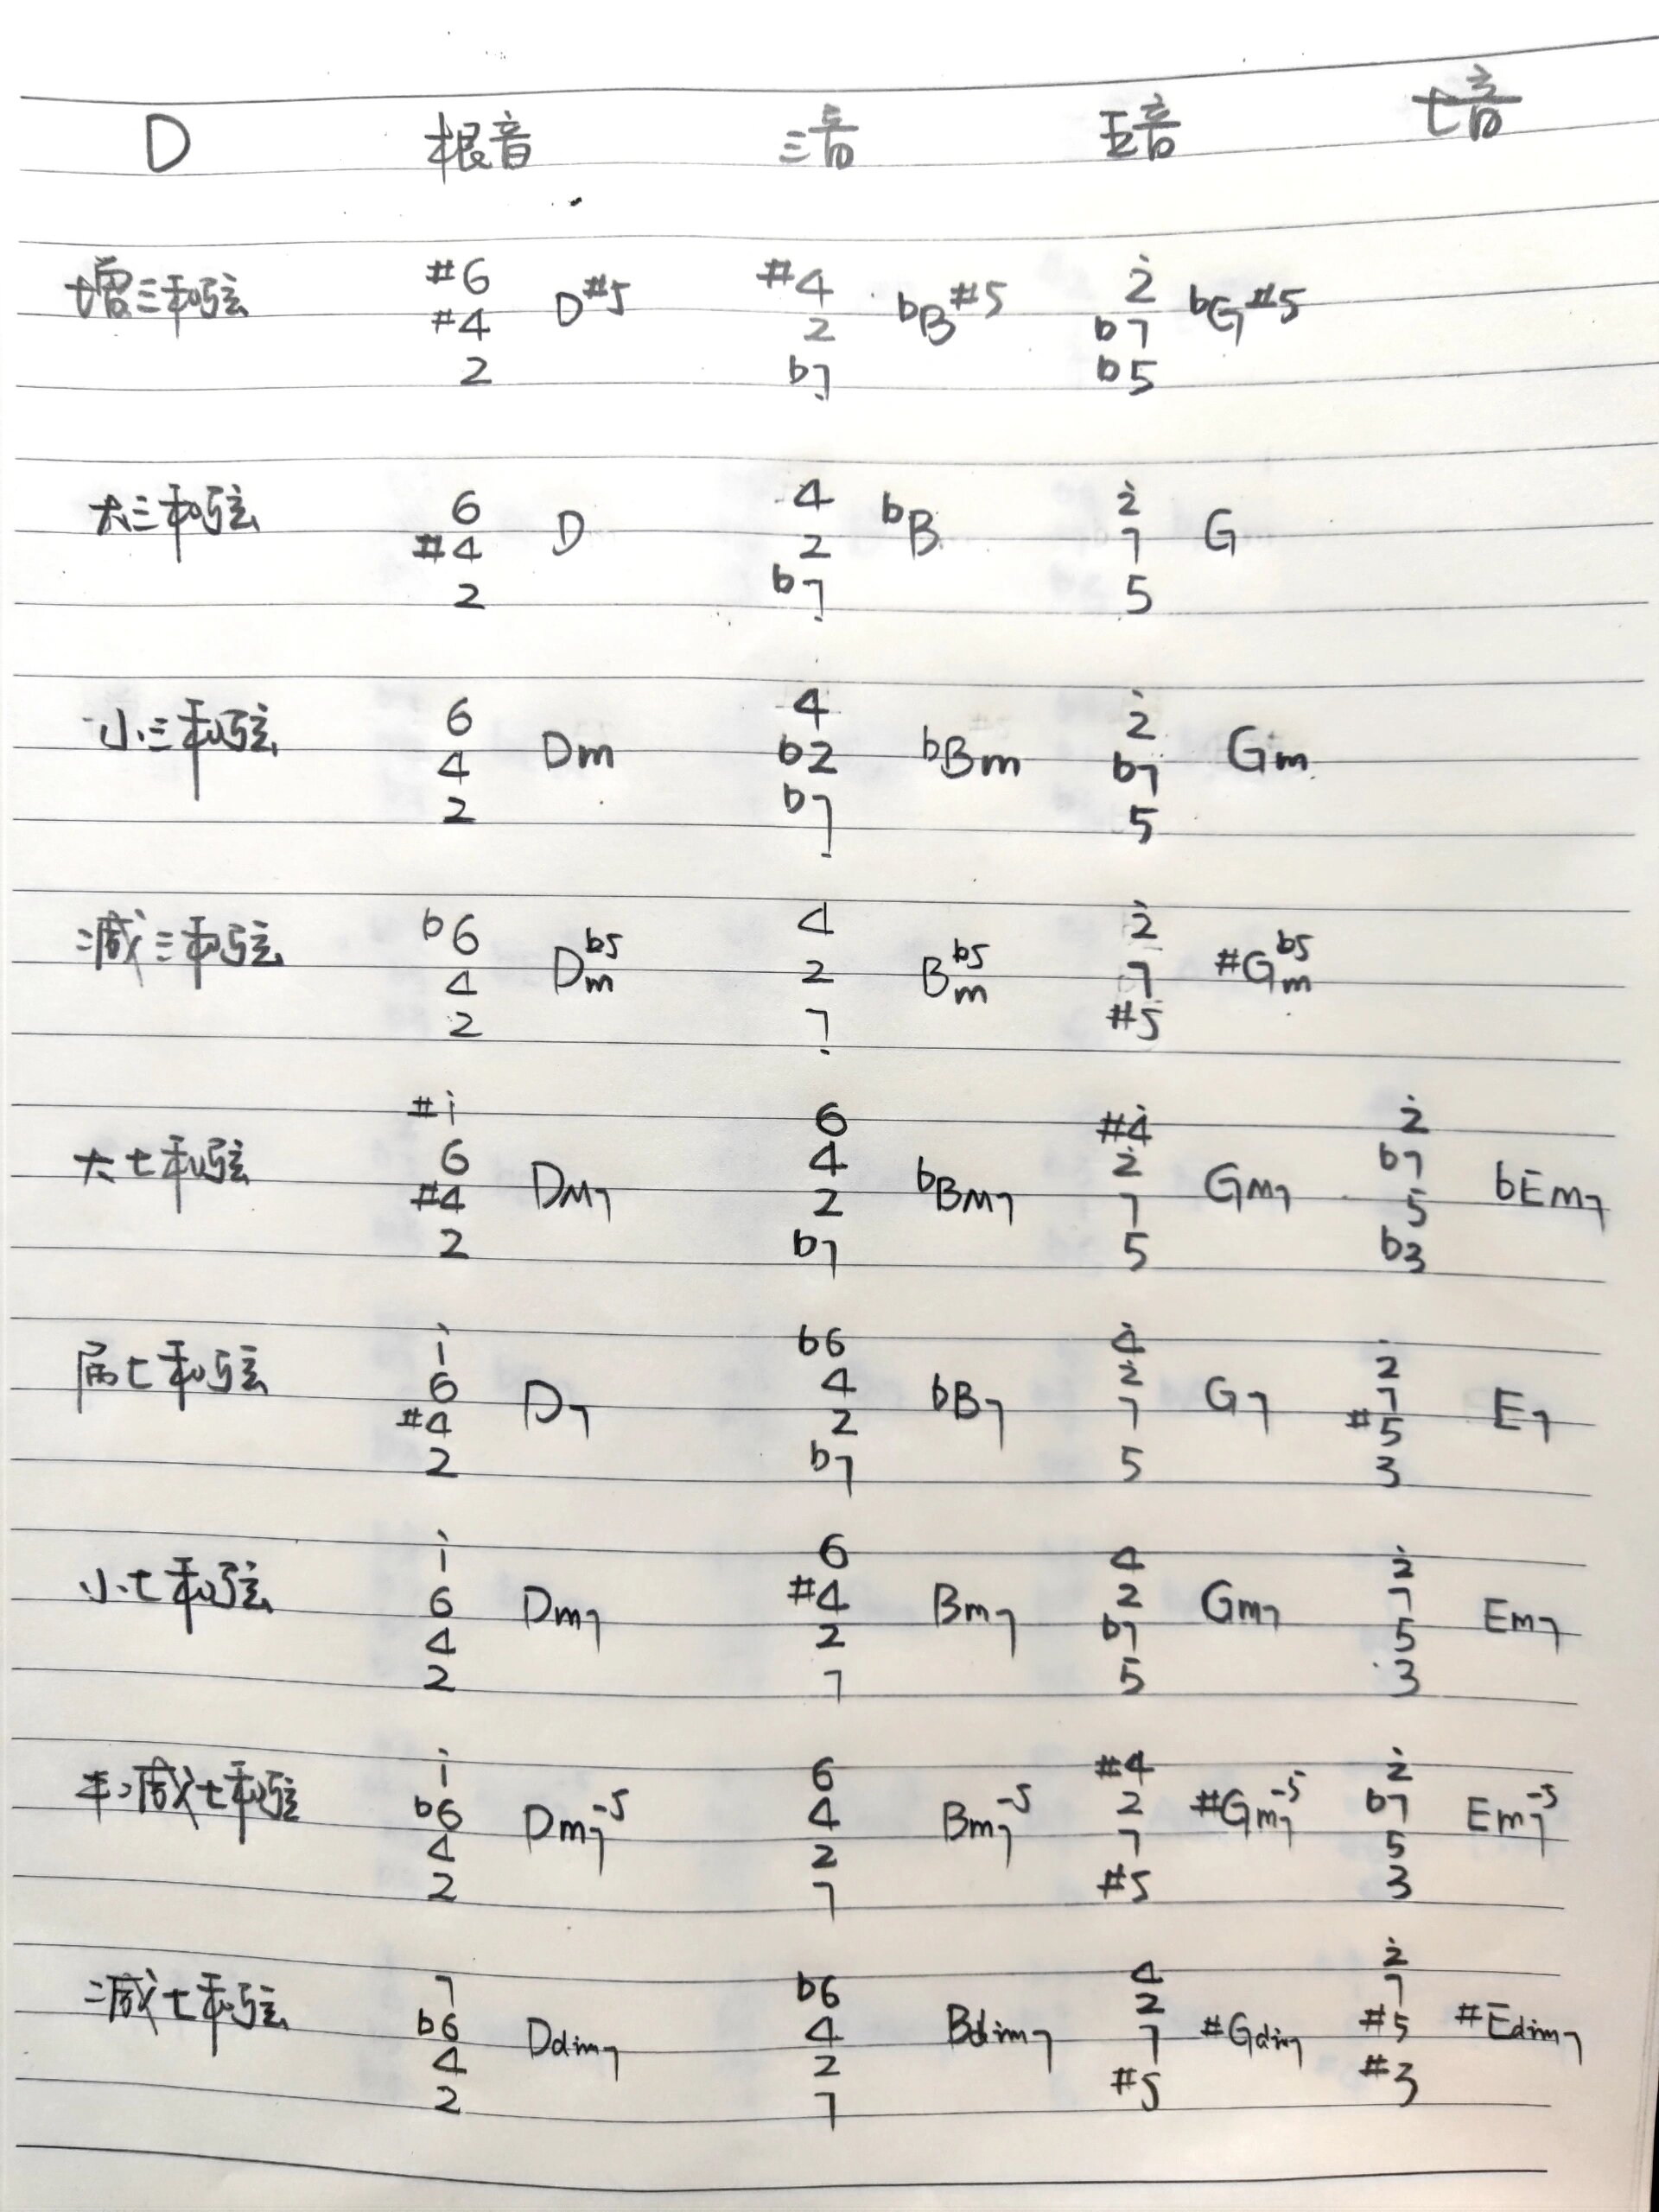 D 根音 三音 五音 七音
#6 #4 2̇
增三和弦 #4 D#5 2 bB#5 b7 bG#5
2 b7̣ b5
6 4 2̇
大三和弦 #4 D 2 bB 7 G
2 b7̣ 5
6 4 2̇
小三和弦 4 Dm b2 bBm b7 Gm
2 b7̣ 5
b6 4 2̇
减三和弦 4 Dmb5 2 Bmb5 7 #Gmb5
2 7̣ #5
#i 6 #4̇ 2̇
大七和弦 6 4 2̇ b7
#4 DM7 2 bBM7 7 GM7 5 bEM7
2 b7 5 b3
i b6 4̇ 2̇
属七和弦 6 4 2̇ 7
#4 D7 2 bB7 7 G7 #5 E7
2 b7 5 3
i 6 4 2̇
小七和弦 6 #4 2 7
4 Dm7 2 Bm7 b7 Gm7 5 Em7
2 7 5 3
i 6 #4 2̇
半减七和弦 b6 4 2 b7
4 Dm7-5 2 Bm7-5 7 #Gm7-5 5 Em7-5
2 7 #5 3
7 b6 4 2̇
减七和弦 b6 4 2 7
4 Ddim7 2 Bdim7 7 #Gdim7 #5 #Edim7
2 7 #5 #3